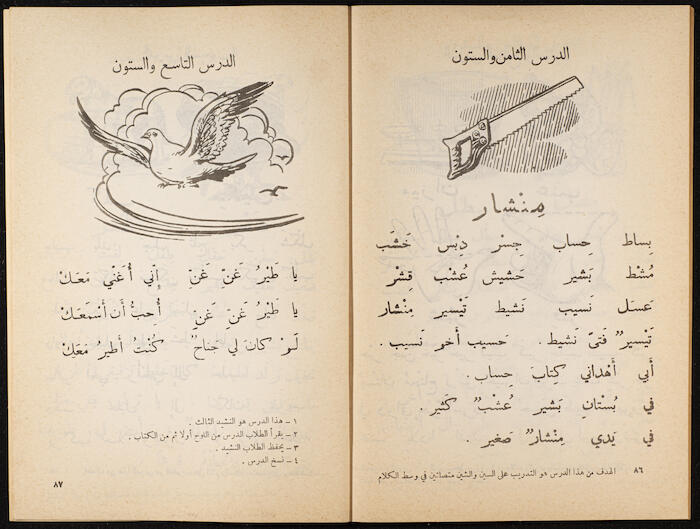 الدرس الثامن والستون
مِنْشار
بِساط حِساب جِسْر دِبْس خَشَب
مُشْط بَشير حَشيش عُشْب قِشْر
عَسَل نَسيب نَشيط تَيْسير مِنْشار
تَيْسيرٌ فَتىً نَشيط . حَسيب أَخو نَسيب .
أَبي أَهْداني كِتابَ حِساب .
في بُسْتانِ بَشير عُشْبٌ كَثير .
في يَدي مِنْشارٌ صَغير .
الهدف من هذا الدرس هو التدريب على السين والشين متصلتين في وسط الكلام
٨٦
الدرس التاسع والستون
يا طَيْرُ غَنِّ غَنِّ إِنّي أُغَنّي مَعَكْ
يا طَيْرُ غَنِّ غَنِّ أُحِبُّ أَنْ أَسْمَعَكْ
لَوْ كانَ لي جَناحٌ كُنْتُ أَطيرُ مَعَكْ
١ – هذا الدرس هو النشيد الثالث .
٢ – يقرأ الطلاب الدرس من اللوح أولا ثم من الكتاب .
٣ – يحفظ الطلاب النشيد .
٤ – نسخ الدرس .
٨٧